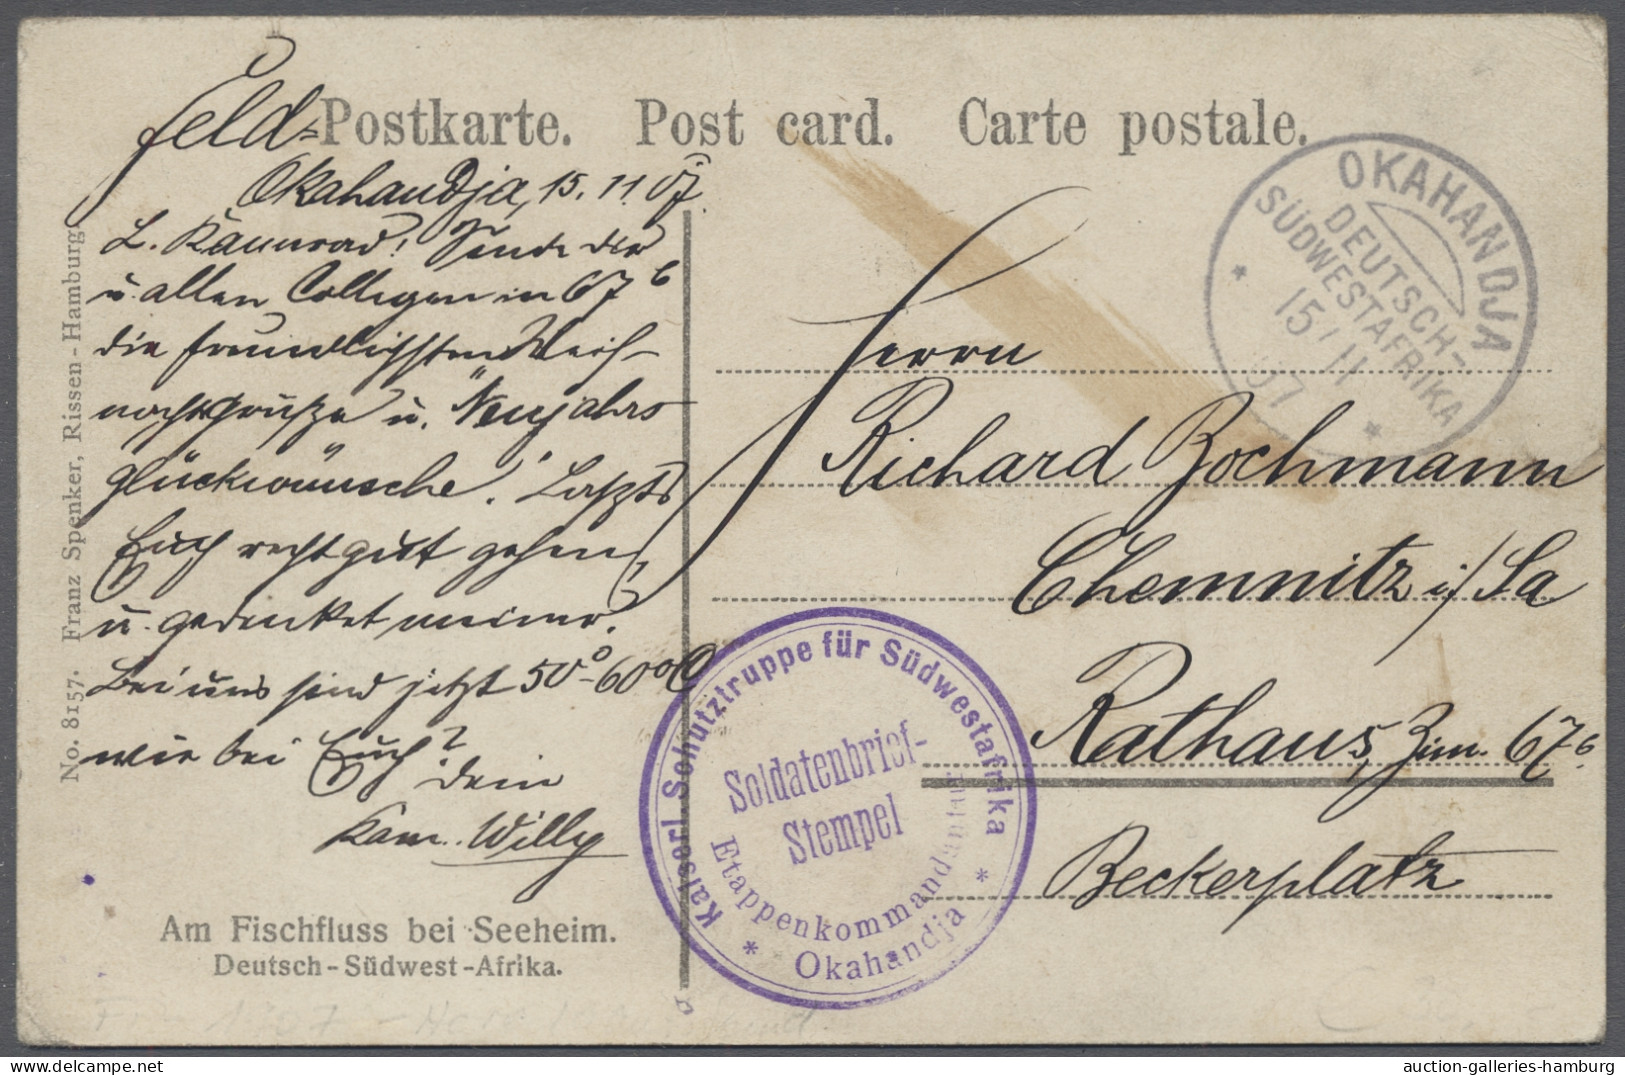 Feld-Postkarte. Post card. Carte postale.
Okahandja, 15.11.07.
L. Kamerad! Sende dir
u. allen Collegen in 67 b
die freundlichsten Weih-
nachtsgrüße u. Neujahrs
glückwünsche. Laßts
Euch recht gut gehen,
u. gedenket meiner.
Bei uns sind jetzt 50°-60°C
wie bei Euch?
Dein
Kam. Willy
Am Fischfluss bei Seeheim.
Deutsch-Südwest-Afrika.
No. 8157. Franz Spenker, Rissen-Hamburg.
OKAHANDJA
DEUTSCH-
SÜDWESTAFRIKA
15/11
07
Herrn
Richard Zochmann
Chemnitz i/Sa
Rathaus, Zim. 67 b.
Beckerplatz
Kaiserl. Schutztruppe für Südwestafrika
Soldatenbrief-
Stempel
Etappenkommandantur
* Okahandja *
auction-galleries-hamburg